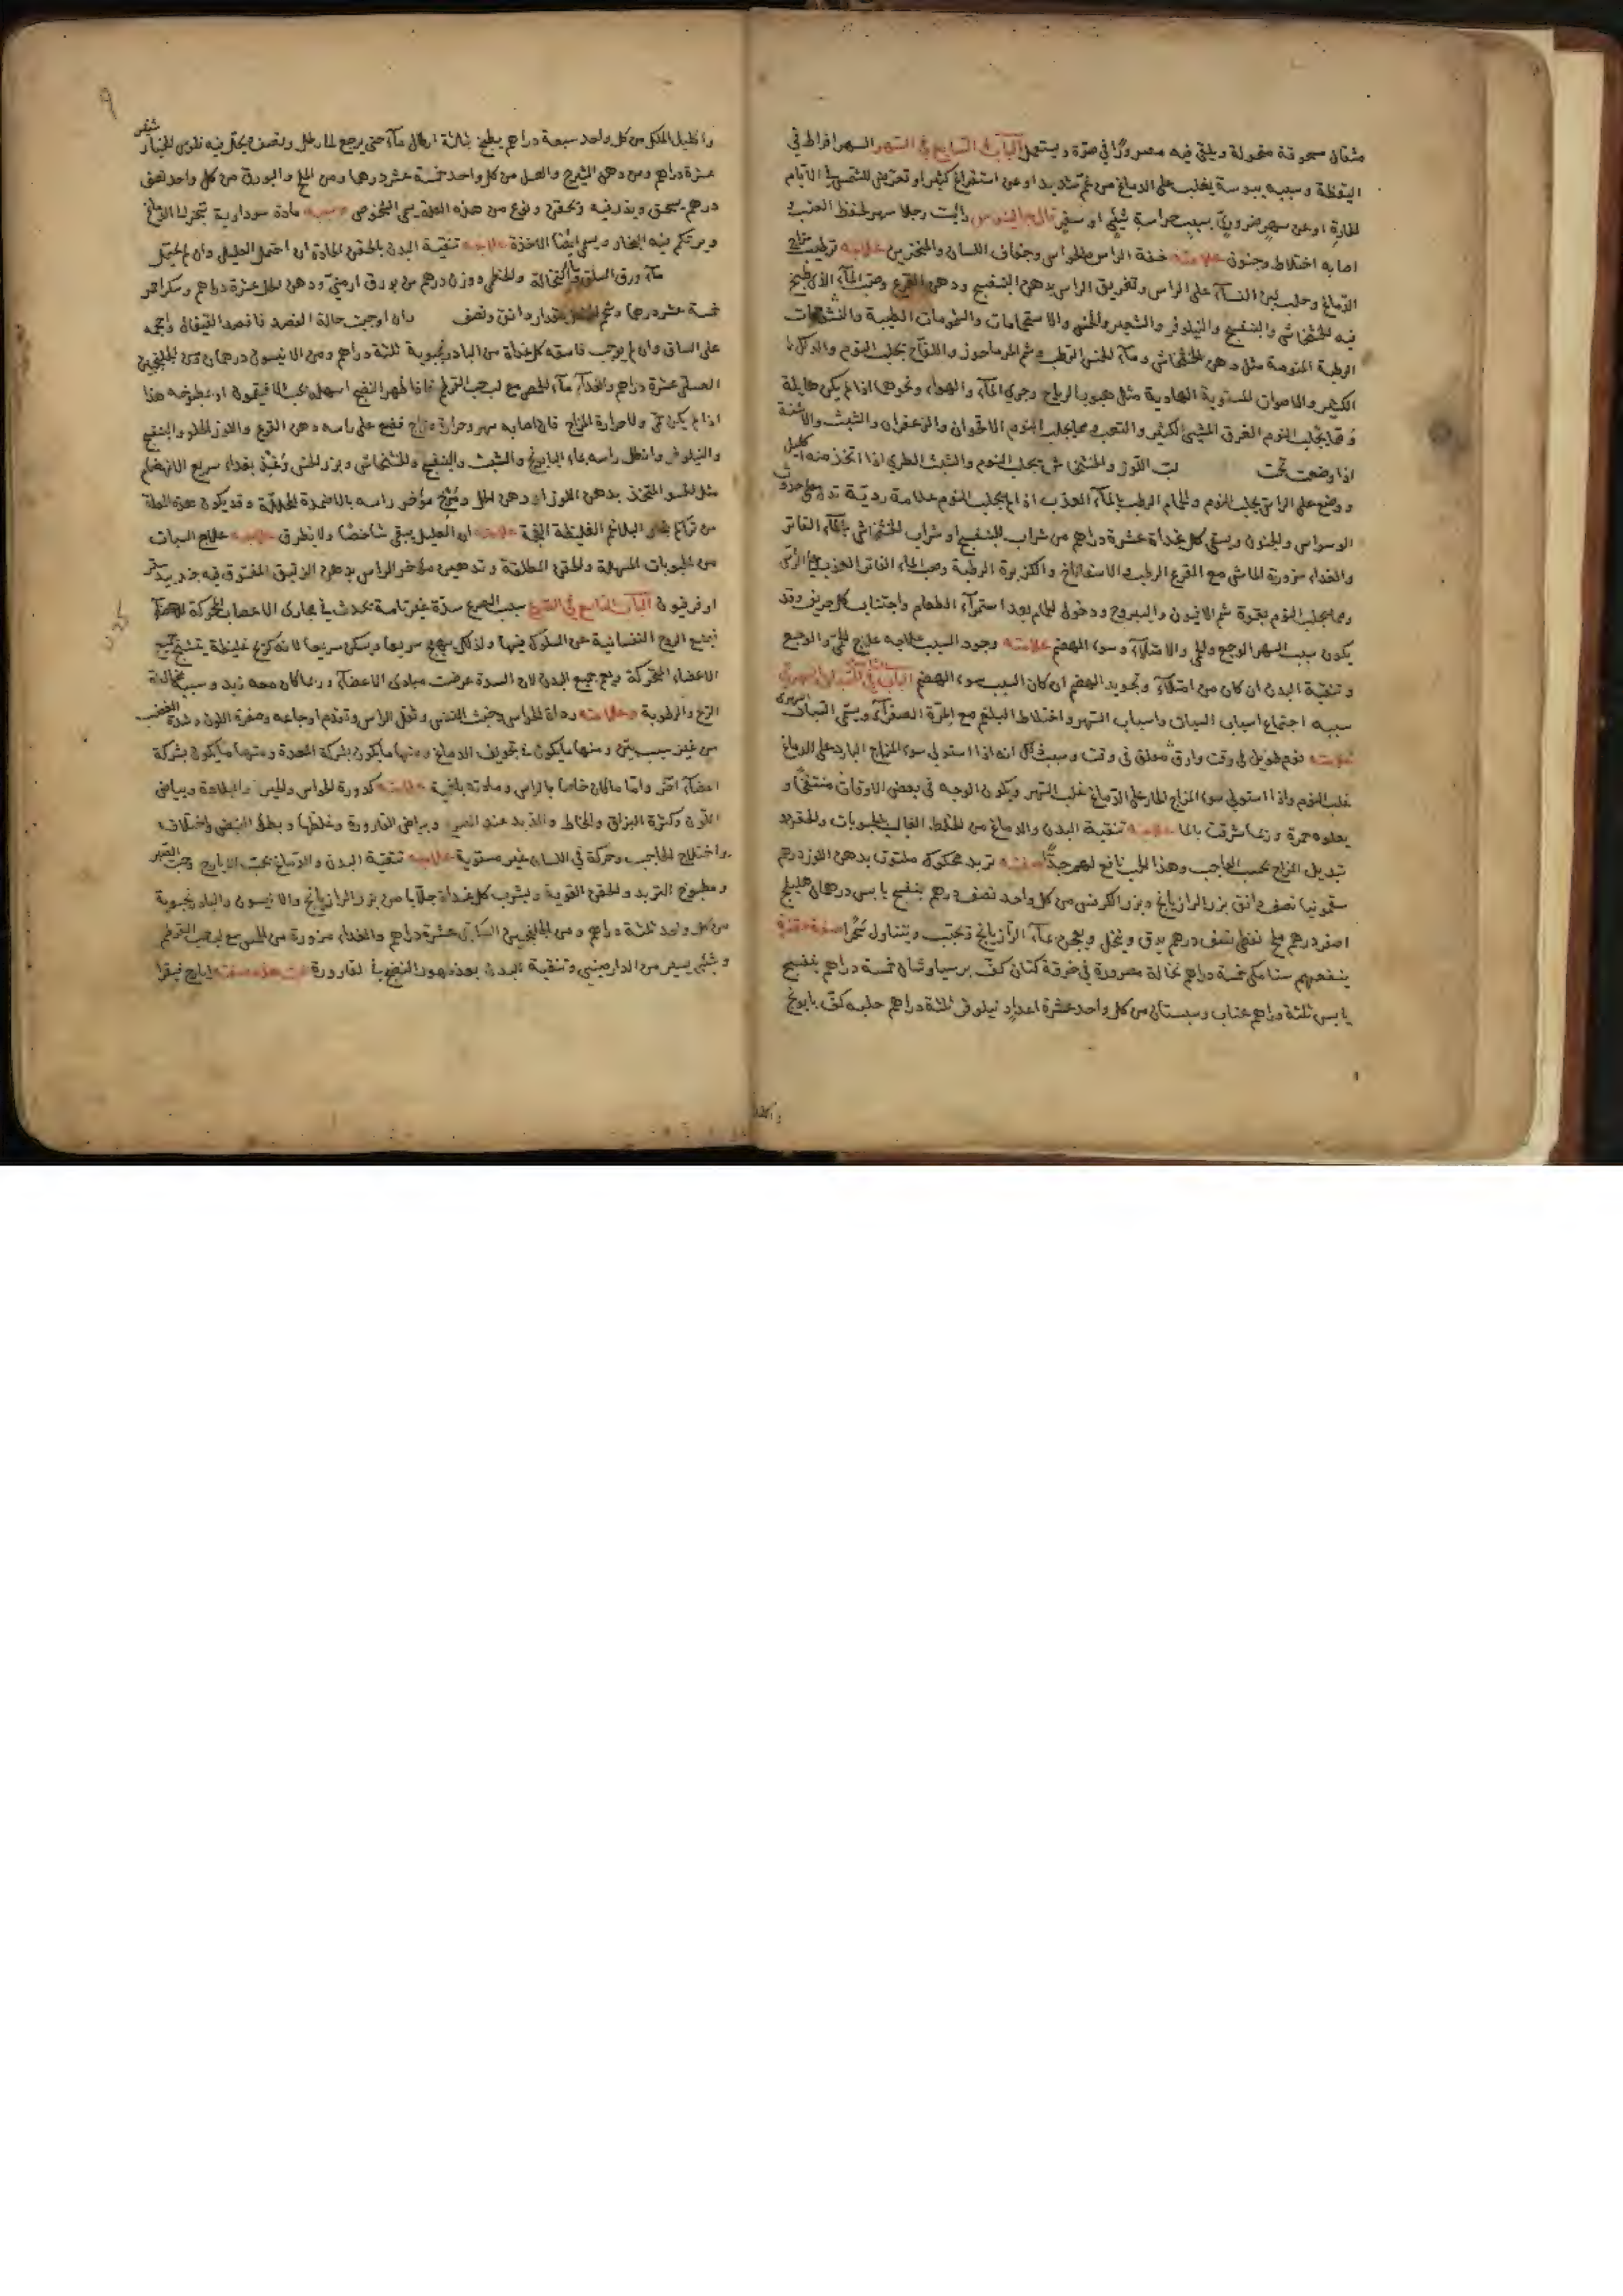 مثقال مسحوقة منخولة ويلقى فيه مصرورًا في صرّة ويستعمل الباب السابع في السهر السهر افراط في
اليقظة وسببه يبوسة يغلب على الدماغ من غمّ شديد او عن استفراغ كثير او تعريض للشمس في الايام
الحارة او عن سهر ضروريّ بسبب حراسة شيء او سفر قال جالينوس رايت رجلا سهر لحفظ العنب
اصابه اختلاط وجنون علامته خفة الراس والحواس وجفاف اللسان والمنخرين علاجه ترطيب مزاج
الدّماغ وحلب لبن النسآء على الراس وتغريق الراس بدهن البنفسج ودهن القرع وصبّ المآء الذى طبخ
فيه الخشخاش والبنفسج والنيلوفر والشعير والخس والاستحمامات والشمومات الطيبة والنشوقات
الرطبة المنومة مثل دهن الخشخاش ومآء الخس الرطب وشم واللفاح يجلب النوم والدلك
الكثير والاصوات المستوية الهادية مثل هبوب الرياح وجرى المآء والهواء ونحوها اذا لم يكن هايلة
وقد يجلب النوم العرق المشي الكثير والتعب ومما يجلب النوم الاقحوان والزعفران والشبث والاشنة
اذا وضعت تحت لبّ اللوز والخشخاش يجلب النوم والشبث الطري اذا اتخذ منه اكليل
ووضع على الراس يجلب النوم والحمام الرطب بالمآء العذب اذا لم يجلب النوم علامة رديّة تدل على حدوث
الوسواس والجنون ويسقى كل غداة عشرة دراهم من شراب البنفسج او شراب الخشخاش بالمآء الفاتر
والغداء مزورة الماش مع القرع الرطب والاسفاناخ والكزبرة الرطبة وصب المآء الفاتر العذب على الراس
ومما يجلب النوم بقوة شم الافيون واليبروح ودخول الحمام بعد استمرآء الطعام واجتناب كل حريف وقد
يكون سبب السهر الوجع والحمى والامتلآء وسوء الهضم علامته وجود السبب علاجه علاج الحمى والوجع
وتنقية البدن ان كان من امتلآء وتجويد الهضم ان كان السبب سوء الهضم الباب الثامن في السبات السهرى
سببه اجتماع اسباب السبات واسباب السهر واختلاط البلغم مع المرّة الصفرآء ويسمّى السبات السهرى
علامته نوم طويل في وقت وارق مقلق في وقت وسبب ذلك انه اذا استولى سوء المزاج البارد على الدماغ
غلب النوم واذا استولى سوء المزاج الحار على الدّماغ غلب السهر ويكون الوجه في بعض الاوقات منتفخا و
يعلوه حمرة وربما شرقت بالما علاجه تنقية البدن والدماغ من الخلط الغالب بالحبوبات والحقن و
تبديل المزاج بحسب الواجب وهذا الحب نافع لهم جدًّا صفته تربد محكوك ملتوت بدهن اللوز درهم
سقمونيا نصف دانق بزر الرازيانج وبزر الكرفس من كل واحد نصف درهم بنفسج يابس درهمان هليلج
اصفر درهم ملح نفطى نصف درهم يدق وينخل ويعجن بمآء الرّازيانج وتحبّب ويتناول سَحَرًا صفة حقنة
ينفعهم سنا مكى خمسة دراهم نخالة مصرورة في خرقة كتان كفّ برسياوشان خمسة دراهم بنفسج
يابس ثلثة دراهم عناب وسبستان من كل واحد عشرة اعداد نيلوفر ثلثة دراهم حلبه كفّ بابونج
واكليل
۹
واكليل الملك من كل واحد سبعة دراهم يطبخ بثلثة ارطال مآء حتى يرجع الى رطل ونصف ويحلّ فيه فلوس الخيار شنبر
عشرة دراهم ومن دهن الشيرج والعسل من كل واحد خمسة عشر درهما ومن الملح والبورق من كل واحد نصف
درهم يسحق ويذر فيه ويحقن ونوع من هذه العلة يسمى الشخوص وسببه مادة سوداوية تتبخر الى الدماغ
ويرتكم فيه البخار ويسمى ايضًا الاخذة علاجه تنقية البدن بالحقن الحادة ان احتمل العليل وان لم يحتمل
مآء ورق السلق والنخالة والخطمى ووزن درهم من بورق ارمنىّ ودهن الحل عشرة دراهم وسكر احمر
خمسة عشر درهما وشحم الحنظل مقدار دانق ونصف وان اوجبت حالة الفصد فافصد القيفال واحجمه
على الساق وان لم يوجب فاسقه كل غداة من البادرنجبوية ثلثة دراهم ومن الانيسون درهمان ومن الجلنجبين
العسلى عشرة دراهم والغدآء مآء الحمص مع لب حب القرطم فاذا ظهر النضج اسهل بحب الافيتمون او بمطبوخه هذا
اذا لم يكن حمى ولا حرارة المزاج فان اصابه سهر وحرارة مزاج فضع على راسه دهن القرع واللوز الحلو والبنفسج
والنيلوفر وانطل راسه بمآء البابونج والشبث والبنفسج والخشخاش وبزر الخس وغذّه بغداء سريع الانهضام
مثل الحسو المتخذ بدهن اللوز او دهن الحل ومُرّخ مؤخر راسه بالاضمدة المحللة وقد يكون هذه العلة
من تراقى بخار البلاغم الغليظة النية علامته ان العليل يبقى شاخصًا ولا يطرق علاجه علاج السبات
من الحبوبات المسهلة والحقن المطلقة وتدهين مؤخر الراس بدهن الزنبق المفتوق فيه جندبيدستر
او فرفيون الباب التاسع في الصرع سبب الصرع سدّة غير تامة تحدث في مجارى الاعصاب المحركة للاعضآء
فيمنع الروح النفسانية عن السلوك فيها ولذلك يهيج سريعا ويسكن سريعا لانه كريح غليظة يتشنج جميع
الاعضاء المتحركة ويعم جميع البدن لان السدة عرضت مبادى الاعضآء وربما كان معه زبد وسببه مخالطة
الريح والرطوبة وعلامته رداة الحواس وخبث النفس وثقل الراس وتقدّم اوجاعه وصفرة اللون وشدة الغضب
من غير سبب بيّن ومنها ما يكون في تجويف الدماغ ومنها ما يكون بشركة المعدة ومنها ما يكون بشركة
اعضآء اخر وامّا ما كان خاصا بالراس ومادته بلغمية علامته كدورة الحواس والحس والبلادة وبياض
اللون وكثرة البزاق والمخاط والزبد عند الصرع وبياض القارورة وغلظها وبطؤ النبض واختلافه
واختلاج الحاجب وحركة في اللسان غير مستوية علاجه تنقية البدن والدّماغ بحب الايارج وحبّ الصبر
ومطبوخ التربد والحقن القوية ويشرب كل غداة جلّابا من بزر الرازيانج والانيسون والبادرنجبوية
من كل واحد ثلثة دراهم ومن الجلنجبين عشرة دراهم والغداء مزورة من الحمص مع لب حب القرطم
وشىء يسير من الدارصينى وتنقية البدن بعد ظهور النضج في القارورة بحب هذه صفته ايارج فيقرا